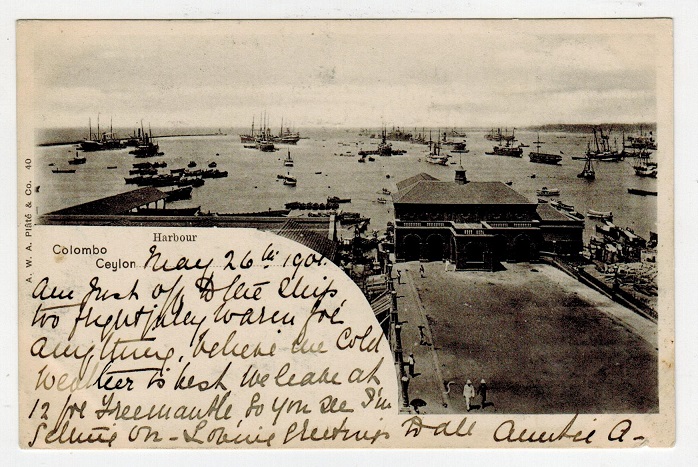 A. W. A. Plâté & Co. 40
Harbour
Colombo
Ceylon
May 26th 1901.
am just off to the Ship
too frightfuley warm for
anything, believe me Cold
weather is best we leave at
12 for Freemantle So you see I'm
getting on - Loving Greetings to all Auntie A-